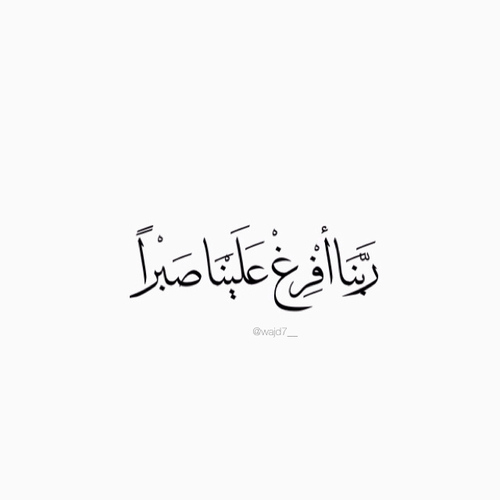 رَبَّنَا أَفْرِغْ عَلَيْنَا صَبْراً
@wajd7__